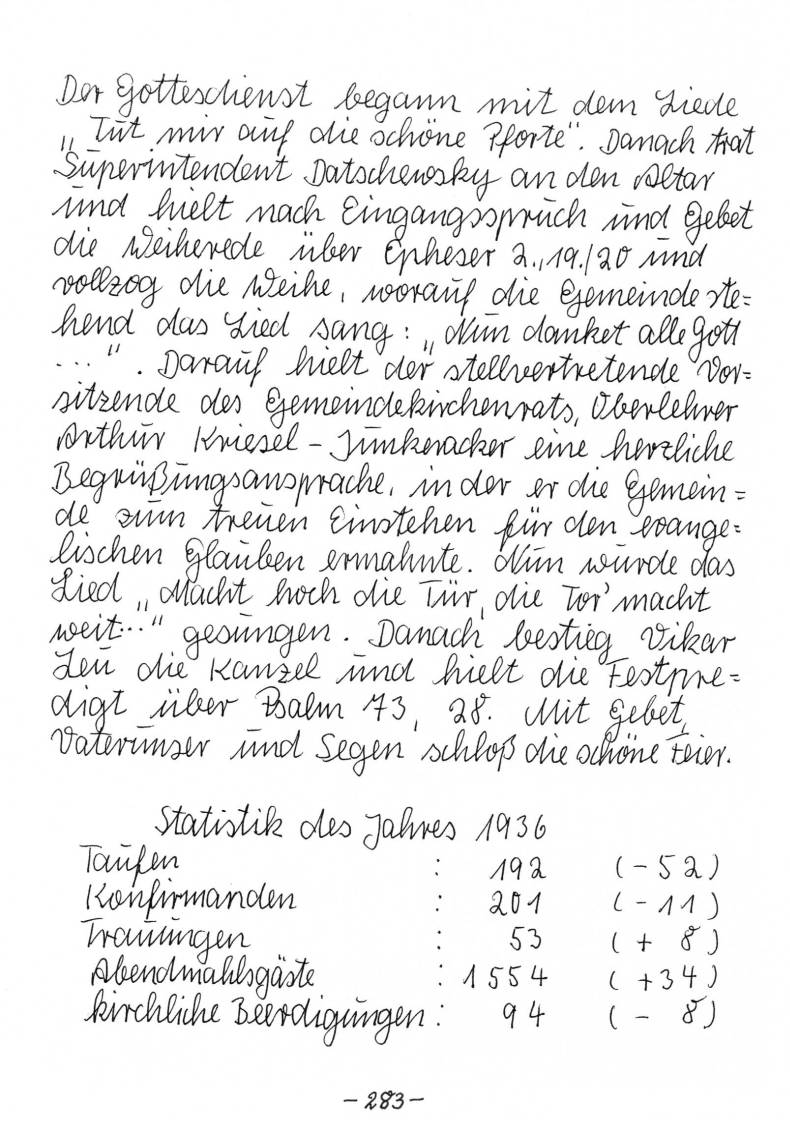 Der Gottesdienst begann mit dem Liede
„Tut mir auf die schöne Pforte". Danach trat
Superintendent Datschewsky an den Altar
und hielt nach Eingangsspruch und Gebet
die Weiherede über Epheser 2.,19./20 und
vollzog die Weihe, worauf die Gemeinde ste=
hend das Lied sang: „Nun danket alle Gott
..." . Darauf hielt der stellvertretende Vor=
sitzende des Gemeindekirchenrats, Oberlehrer
Arthur Kriesel - Junkeracker eine herzliche
Begrüßungsansprache, in der er die Gemein=
de zum treuen Einstehen für den evange=
lischen Glauben ermahnte. Nun wurde das
Lied „Macht hoch die Tür, die Tor' macht
weit..." gesungen. Danach bestieg Vikar
Leu die Kanzel und hielt die Festpre=
digt über Psalm 73, 28. Mit Gebet,
Vaterunser und Segen schloß die schöne Feier.
Statistik des Jahres 1936
Taufen : 192 (-52)
Konfirmanden : 201 (-11)
Trauungen : 53 (+ 8)
Abendmahlsgäste : 1554 (+34)
kirchliche Beerdigungen : 94 (- 8)
-283-